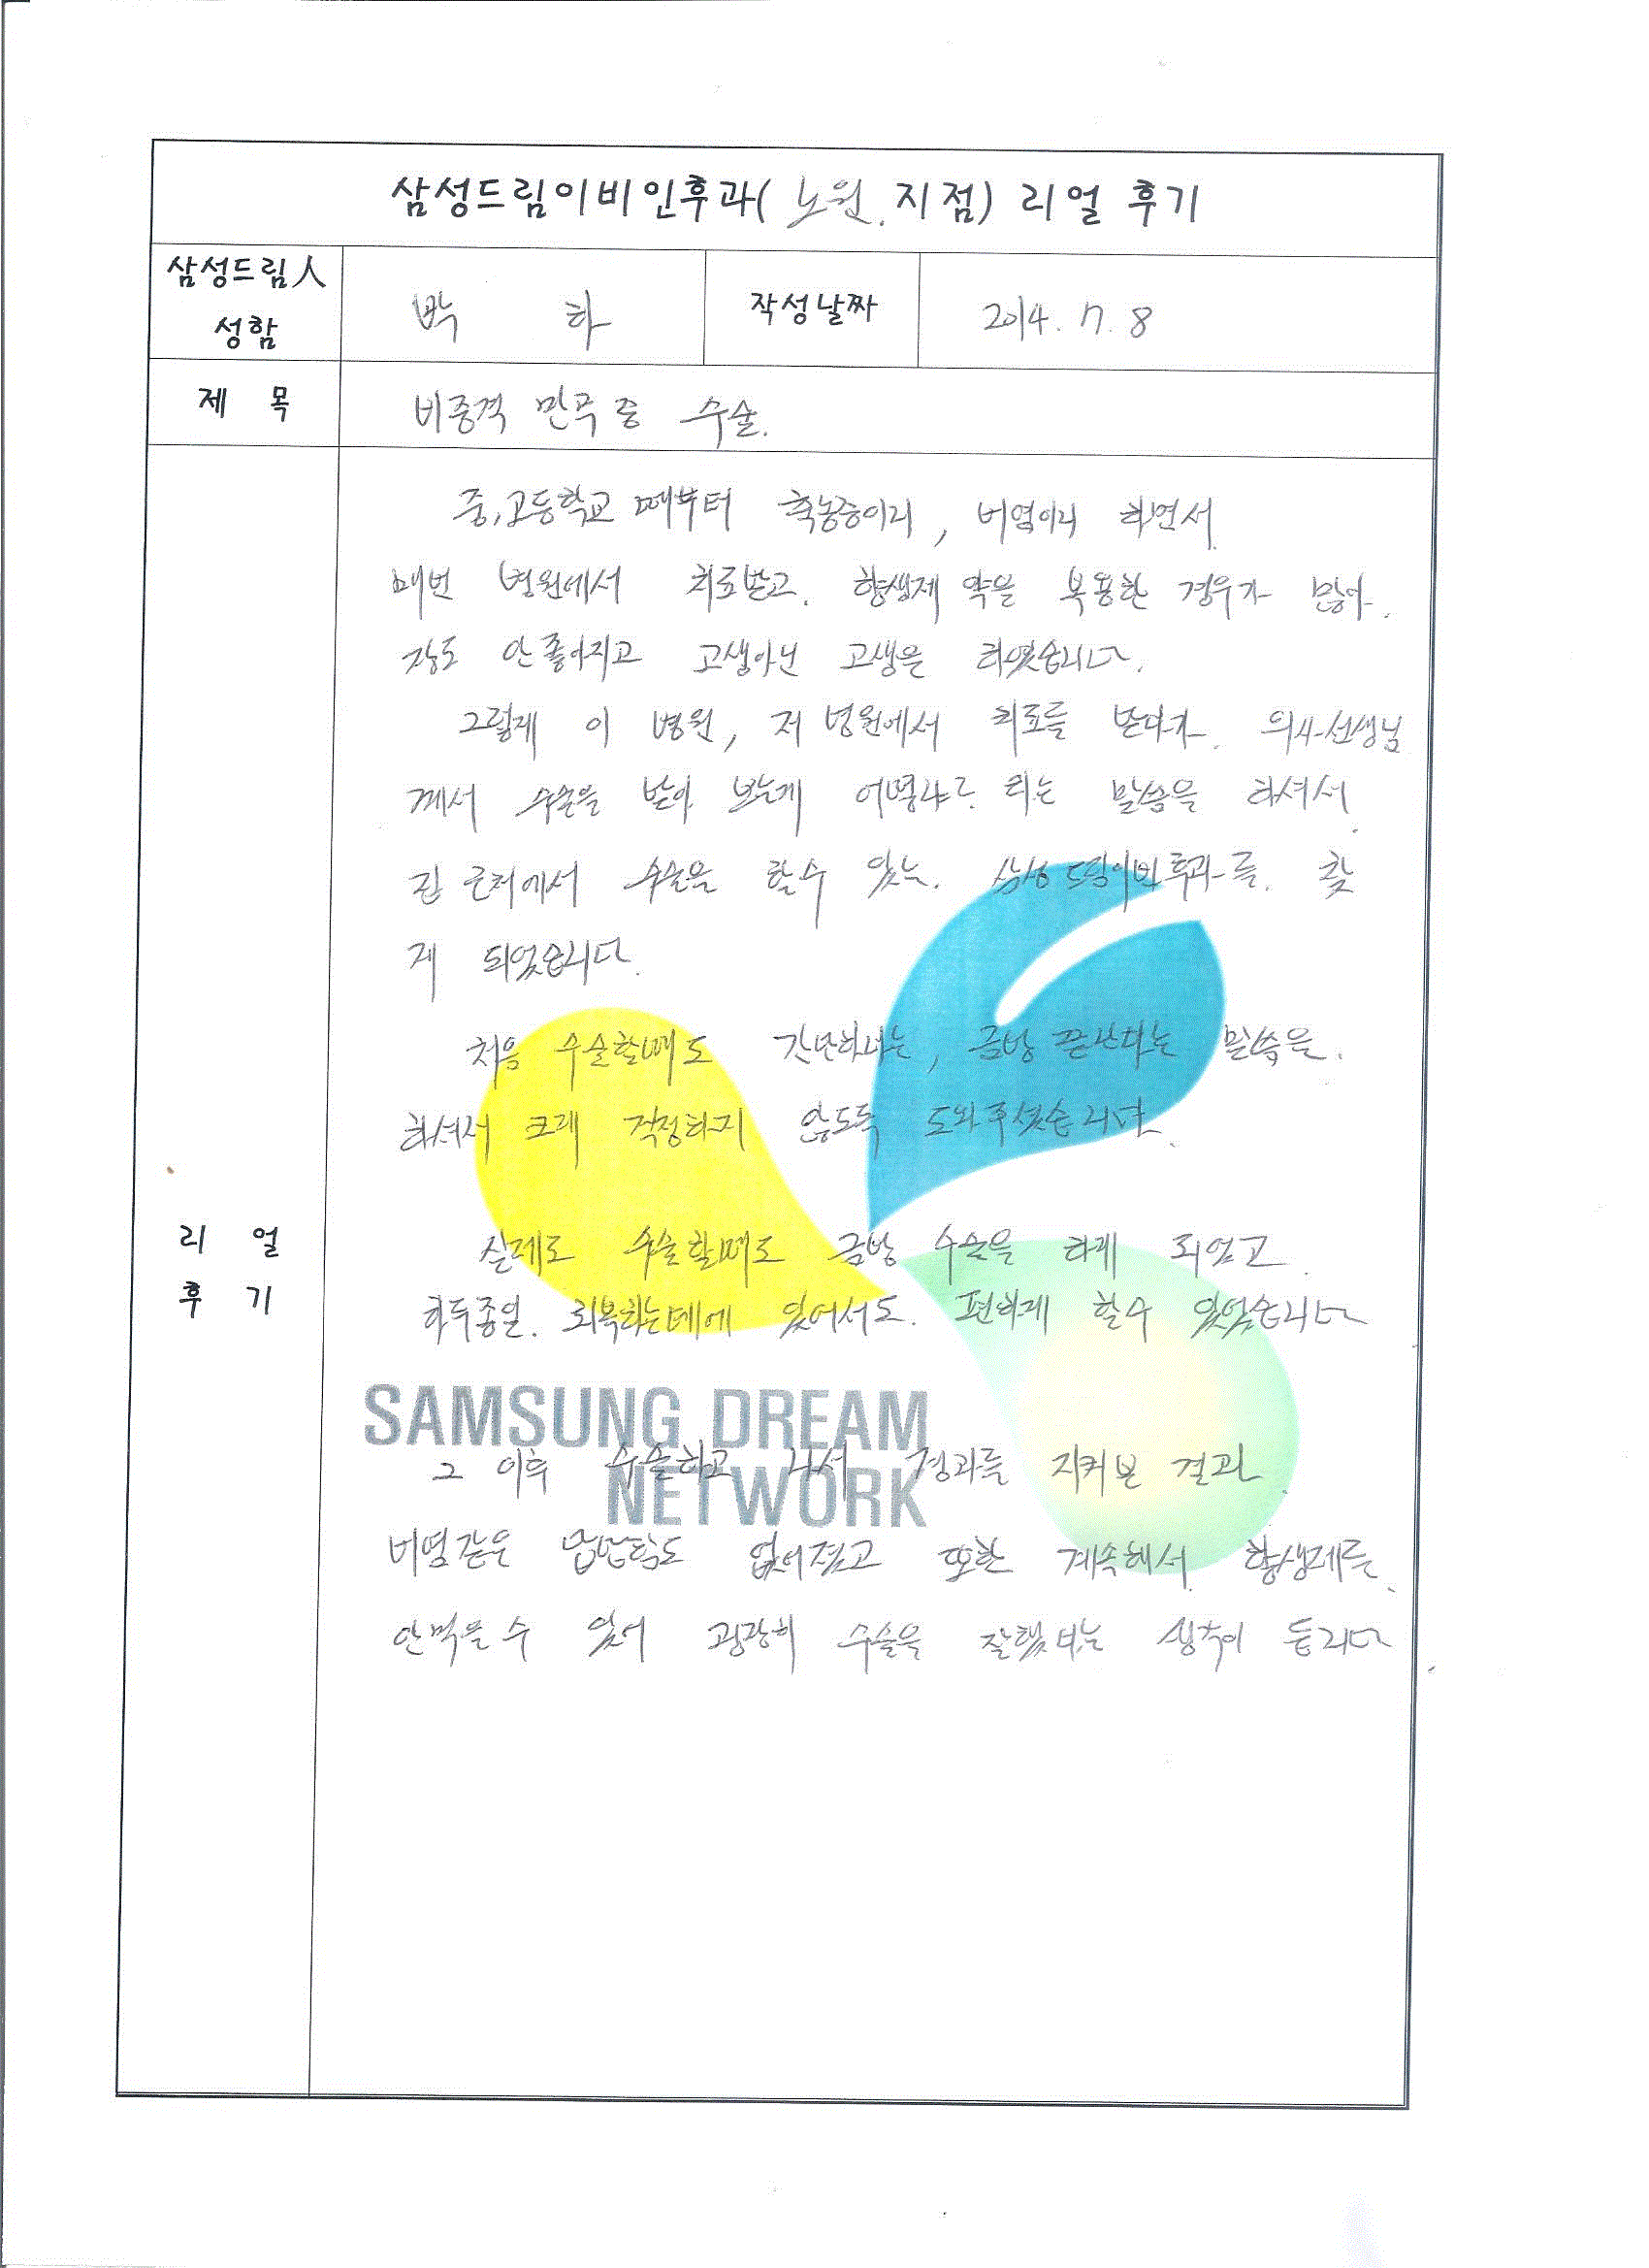 삼성드림이비인후과( 노원 지점) 리얼 후기
삼성드림人 성함
박 하
작성날짜
2014. 7. 8
제 목
비중격 만곡증 수술.
리 얼 후 기
중,고등학교 때부터 축농증이라, 비염이라 하면서
매번 병원에서 치료받고. 항생제 약을 복용한 경우가 많아.
장도 안좋아지고 고생아닌 고생을 하였습니다.
그렇게 이 병원, 저 병원에서 치료를 받다가. 의사선생님
께서 수술을 받아 보는게 어떻냐? 라는 말씀을 하셔서.
집 근처에서 수술을 할수 있는. 삼성드림이비인후과를. 찾
게 되었습니다.
처음 수술할때도 간단하다는, 금방 끝난다는 말씀을.
하셔서 크게 걱정하지 않도록 도와주셨습니다.
실제로 수술할때도 금방 수술을 하게 되었고.
하루종일. 회복하는데에 있어서도. 편하게 할수 있었습니다
SAMSUNG DREAM
NETWORK
그 이후 수술하고 나서 경과를 지켜본 결과.
비염같은 답답함도 없어졌고 또한 계속해서. 항생제를.
안먹을수 있어 굉장히 수술을 잘했다는 생각이 듭니다